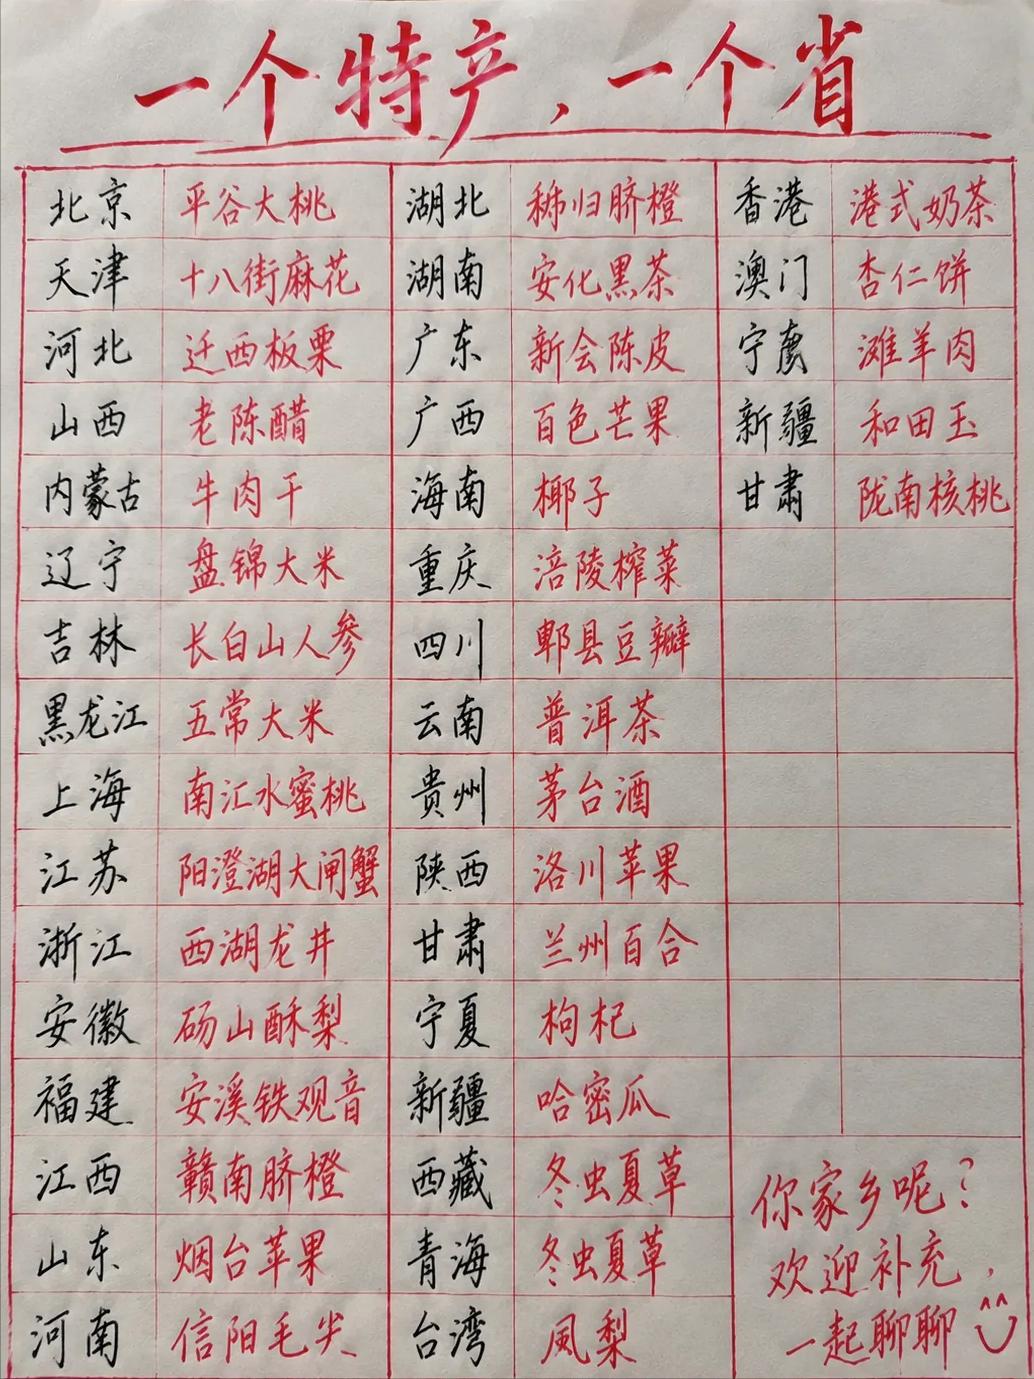 一个特产，一个省
北京 平谷大桃 湖北 秭归脐橙 香港 港式奶茶
天津 十八街麻花 湖南 安化黑茶 澳门 杏仁饼
河北 迁西板栗 广东 新会陈皮 宁夏 滩羊肉
山西 老陈醋 广西 百色芒果 新疆 和田玉
内蒙古 牛肉干 海南 椰子 甘肃 陇南核桃
辽宁 盘锦大米 重庆 涪陵榨菜
吉林 长白山人参 四川 郫县豆瓣
黑龙江 五常大米 云南 普洱茶
上海 南汇水蜜桃 贵州 茅台酒
江苏 阳澄湖大闸蟹 陕西 洛川苹果
浙江 西湖龙井 甘肃 兰州百合
安徽 砀山酥梨 宁夏 枸杞
福建 安溪铁观音 新疆 哈密瓜
江西 赣南脐橙 西藏 冬虫夏草
山东 烟台苹果 青海 冬虫夏草
河南 信阳毛尖 台湾 凤梨
你家乡呢？
欢迎补充，
一起聊聊